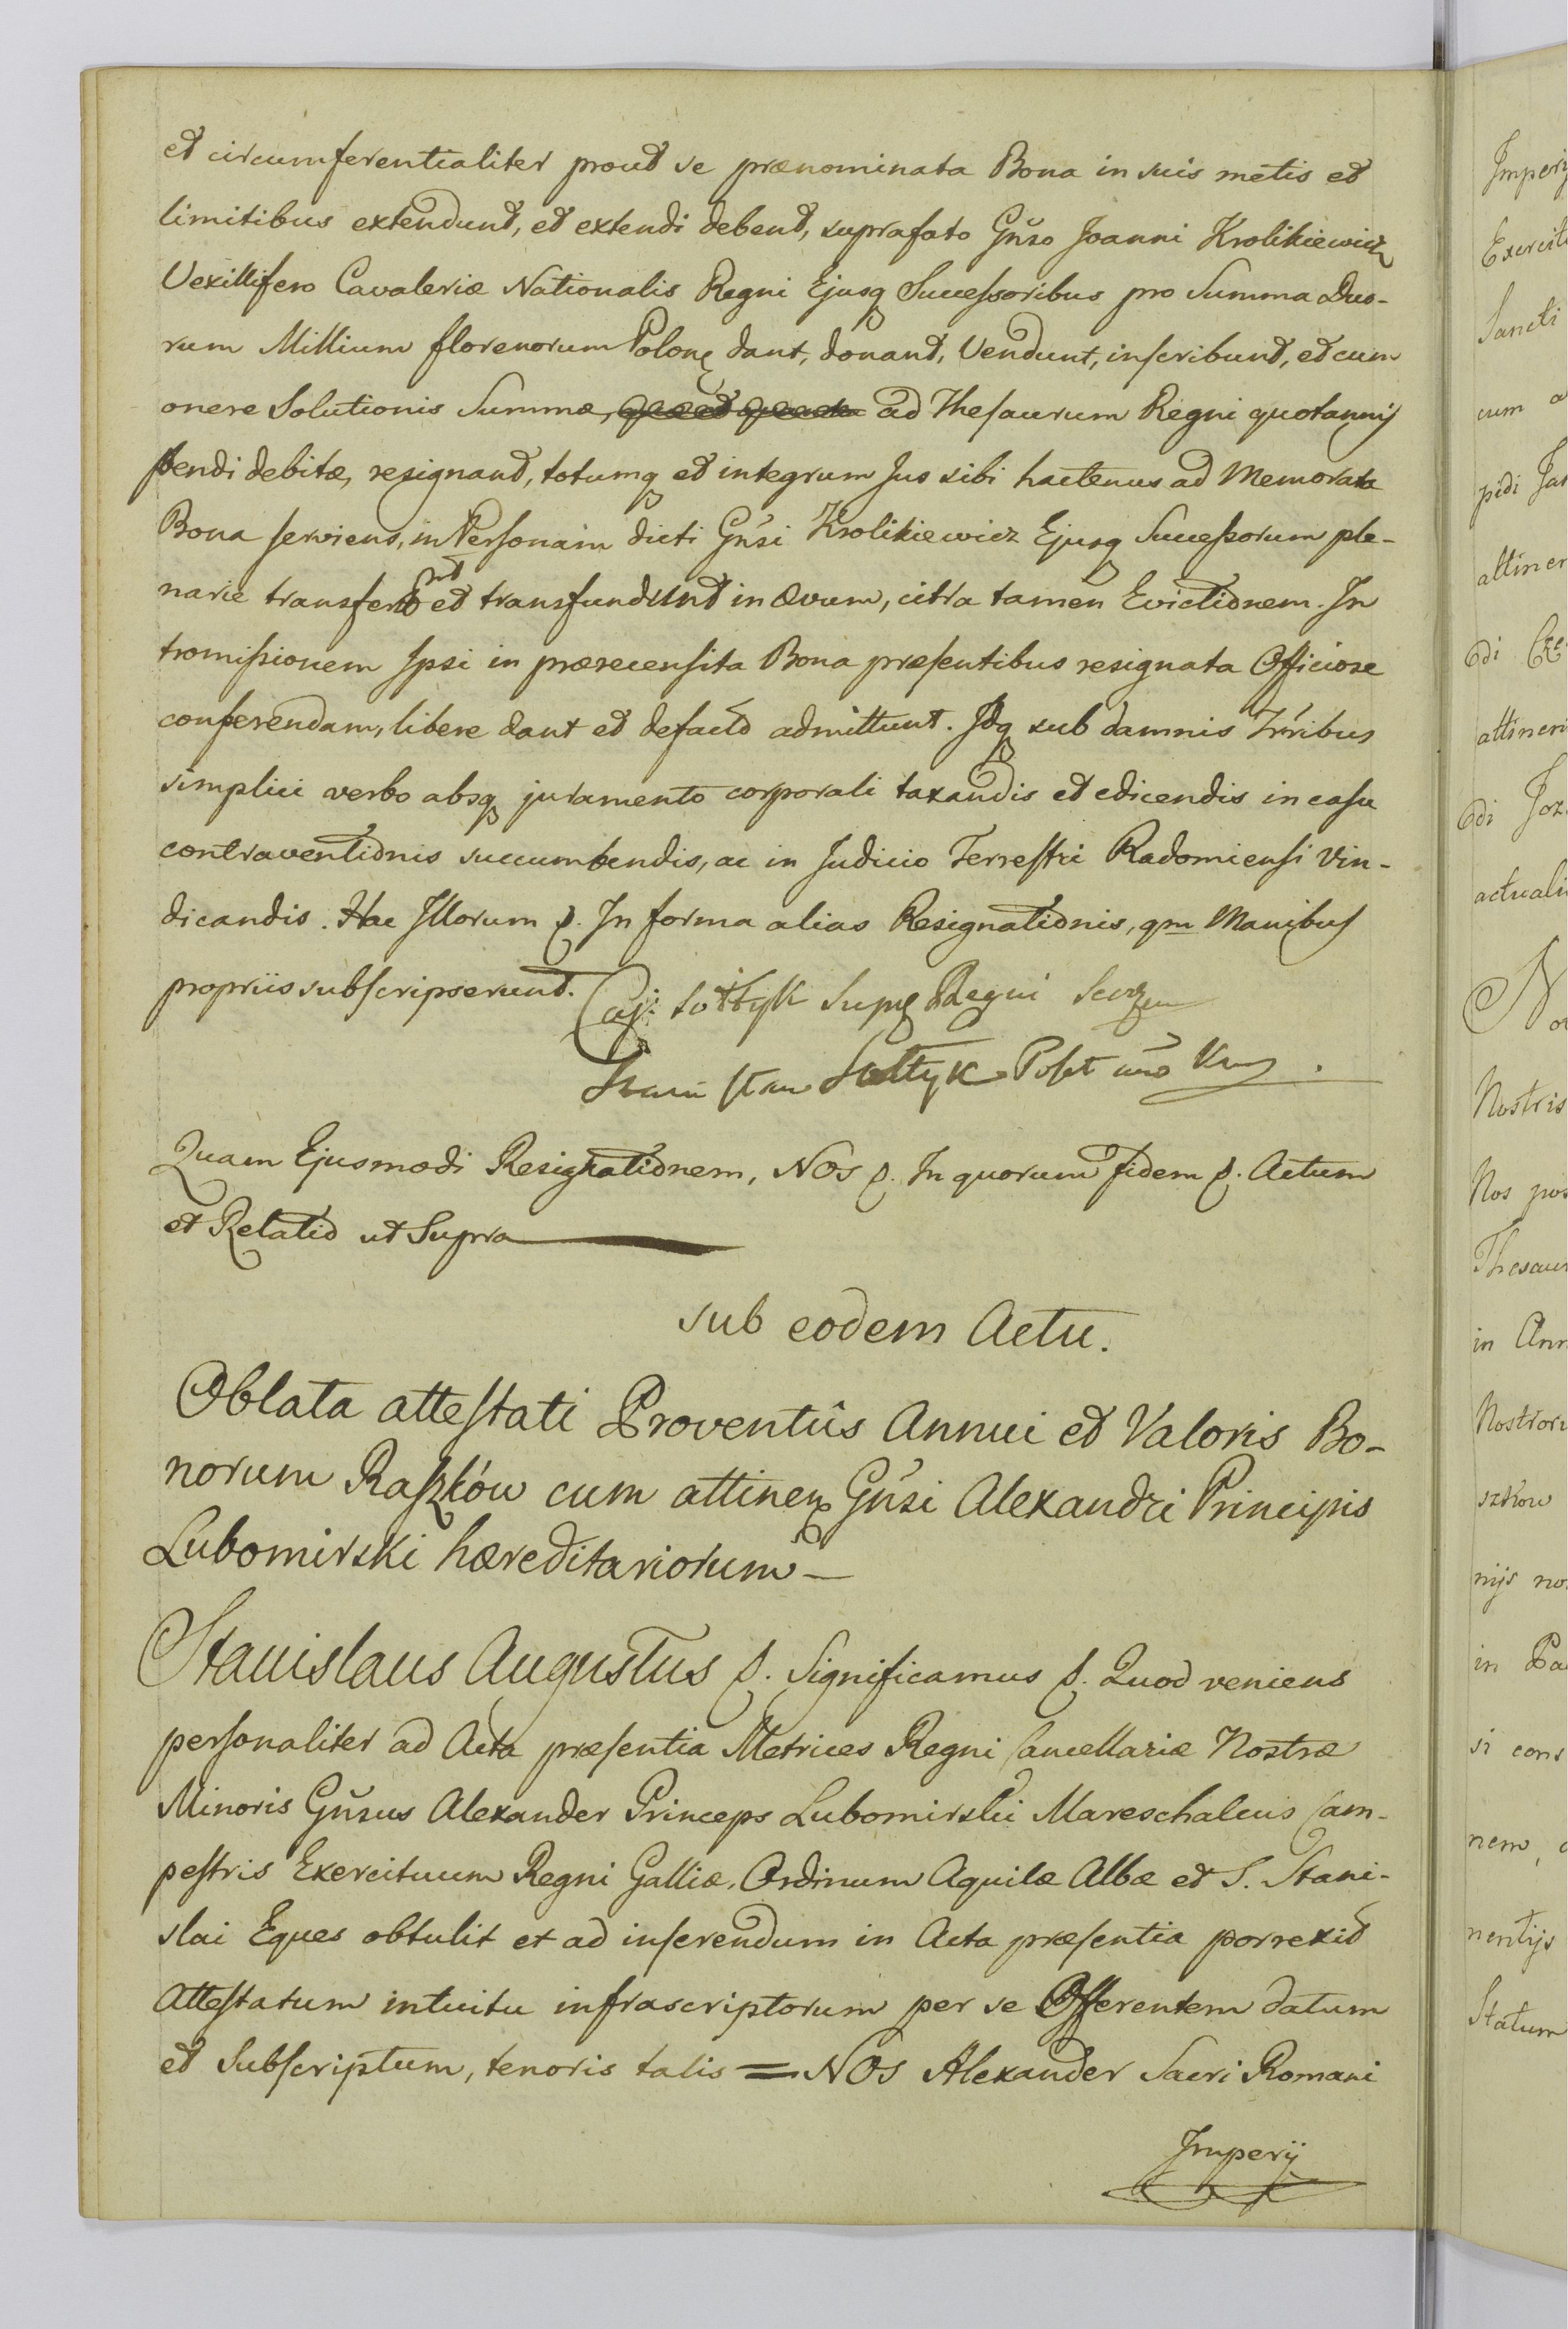 et circumferentialiter prout se prænominata Bona in suis metis et
limitibus extendunt, et extendi debent, suprafato Gñso Joanni Krolikiewicz
Vexillifero Cavaleriæ Nationalis Regni Ejusq Successoribus pro Summa Duo-
rum Millium florenorum Polon dant, donant, Vendunt, inscribunt, et cum
onere Solutionis Summæ, ad Thesaurum Regni quotannis
pendi debitæ, resignant, totumq et integrum Jus sibi hactenus ad Memorata
Bona serviens, in Personam dicti Gñsi Krolikiewicz Ejusq Successorum ple-
narie transferunt et transfundunt in ævum, citra tamen Evictionem. In
tromissionem Ipsi in prærecensita Bona præsentibus resignata Officiose
conferendam, libere dant et defacto admittunt. Idq sub damnis Trribus
simplici verbo absq juramento corporali taxandis et edicendis in casu
contraventionis succumbendis, ac in Judicio Terrestri Radomiensi Vin-
dicandis. Hac Illorum p. In forma alias Resignationis, qm Manibus
propriis subscripserunt. Caj: Sołtyk Regni
Sołtyk
Quam Ejusmodi Resignationem, NOS p. In quorum fidem p. Actum
et Relatio ut Supra
sub eodem Actu.
Oblata attestati Proventûs Annui et Valoris Bo-
norum Raszków cum attinen Gñsi Alexandri Principis
Lubomirski hæreditariorum—
Stanislaus Augustus p. Significamus p. Quod veniens
personaliter ad Acta præsentia Metrices Regni Cancellariæ Nostræ
Minoris Gñsus Alexander Princeps Lubomirski Mareschalcus Cam-
pestris Exercituum Regni Galliæ, Ordinum Aquilæ Albæ et S. Stani-
slai Eques obtulit et ad inserendum in Acta præsentia porrexit
Attestatum intuitu infrascriptorum per se Offerentem datum
et Subscriptum, tenoris talis = NOS Alexander Sacri Romani
Imperij